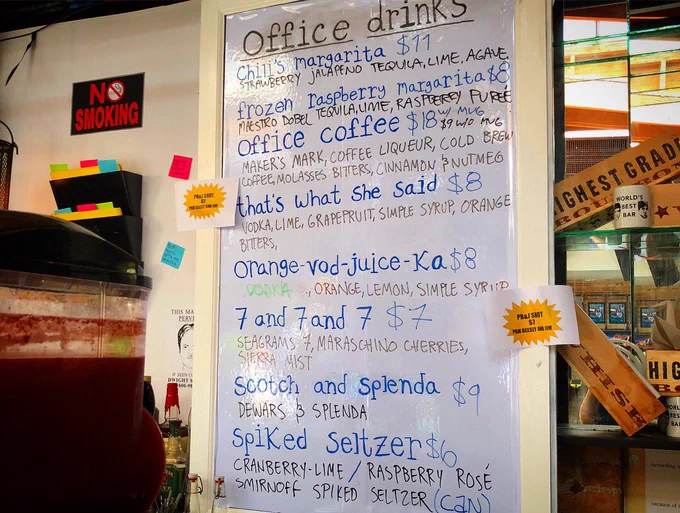 Office drinks
Chili's margarita $11
STRAWBERRY JALAPEÑO TEQUILA, LIME, AGAVE
frozen raspberry margarita $8
MAESTRO DOBEL TEQUILA, LIME, RASPBERRY PUREÉ
Office coffee $18 w/ MUG
$9 w/o MUG
MAKER'S MARK, COFFEE LIQUEUR, COLD BREW
COFFEE, MOLASSES BITTERS, CINNAMON & NUTMEG
that's what she said $8
VODKA, LIME, GRAPEFRUIT, SIMPLE SYRUP, ORANGE
BITTERS,
Orange-vod-juice-Ka $8
VODKA, ORANGE, LEMON, SIMPLE SYRUP
7 and 7 and 7 $7
SEAGRAMS 7, MARASCHINO CHERRIES,
SIERRA MIST
Scotch and Splenda $9
DEWARS & SPLENDA
Spiked Seltzer $6
CRANBERRY-LIME / RASPBERRY ROSÉ
SMIRNOFF SPIKED SELTZER (CAN)
NO
SMOKING
PB&J SHOT
$7
PAM BEESLEY AND JIM
PB&J SHOT
$7
PAM BEESLEY AND JIM
THIS MA
PERVE
DWIGHT S
HIGHEST GRADE
WORLD'S
BEST
BAR
HISK
HIG